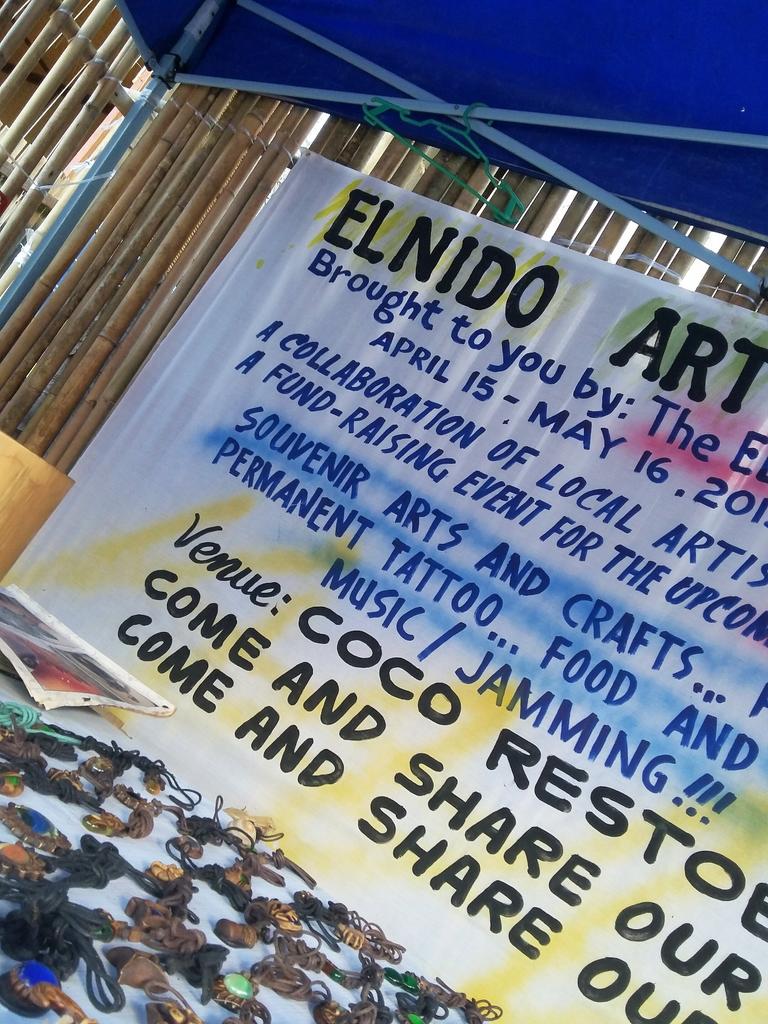 ELNIDO ART
Brought to you by: The
APRIL 15 - MAY 16. 201
A COLLABORATION OF LOCAL ARTIS
A FUND-RAISING EVENT FOR THE UPCOM
SOUVENIR ARTS AND CRAFTS...
PERMANENT TATTOO... FOOD AND
MUSIC / JAMMING!!!
Venue: COCO RESTO
COME AND SHARE OUR
COME AND SHARE OUR